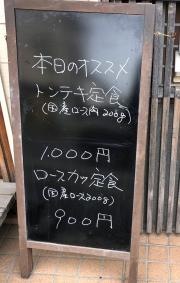 本日のオススメ
トンテキ定食
(国産ロース肉200g)
1.000円
ロースカツ定食
(国産ロース200g)
900円